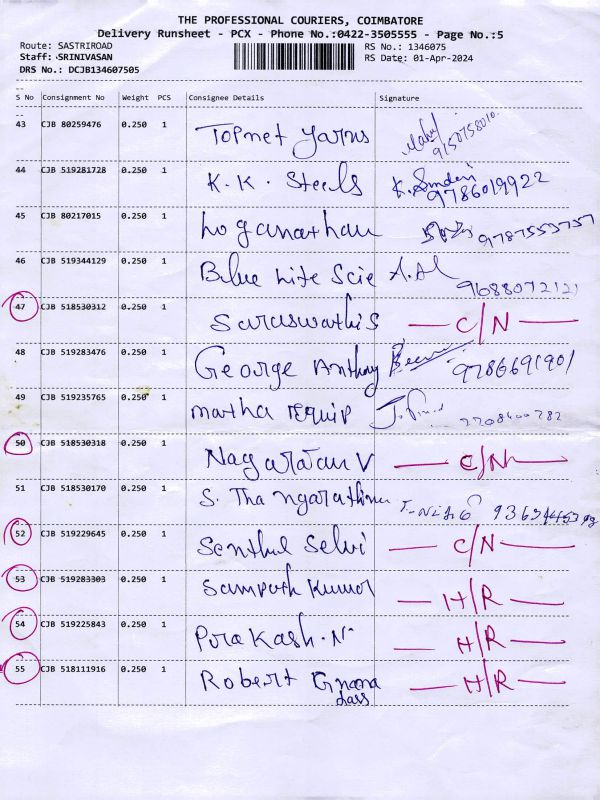 THE PROFESSIONAL COURIERS, COIMBATORE
Delivery Runsheet - PCX - Phone No.:0422-3505555 - Page No.:5
Route: SASTRIROAD RS No.: 1346075
Staff: SRINIVASAN RS Date: 01-Apr-2024
DRS No.: DCJB134607505
S No Consignment No Weight PCS Consignee Details Signature
43 CJB 80259476 0.250 1 Topnet Yarns 9150758010
44 CJB 519281728 0.250 1 K.K. Steels K. Sundari 9786019922
45 CJB 80217015 0.250 1 Loganathan 9787553757
46 CJB 519344129 0.250 1 Blue Lite Scie 9688072121
47 CJB 518530312 0.250 1 Saraswathi S C/N
48 CJB 519283476 0.250 1 George Anthony 9786691901
49 CJB 519235765 0.250 1 martha equip
50 CJB 518530318 0.250 1 Nagarajan V C/N
51 CJB 518530170 0.250 1 S. Thangarathinam
52 CJB 519229645 0.250 1 Senthil Selvi C/N
53 CJB 519283303 0.250 1 Sampath Kumar H/R
54 CJB 519225843 0.250 1 Prakash.N H/R
55 CJB 518111916 0.250 1 Robert Gnana H/R
dass